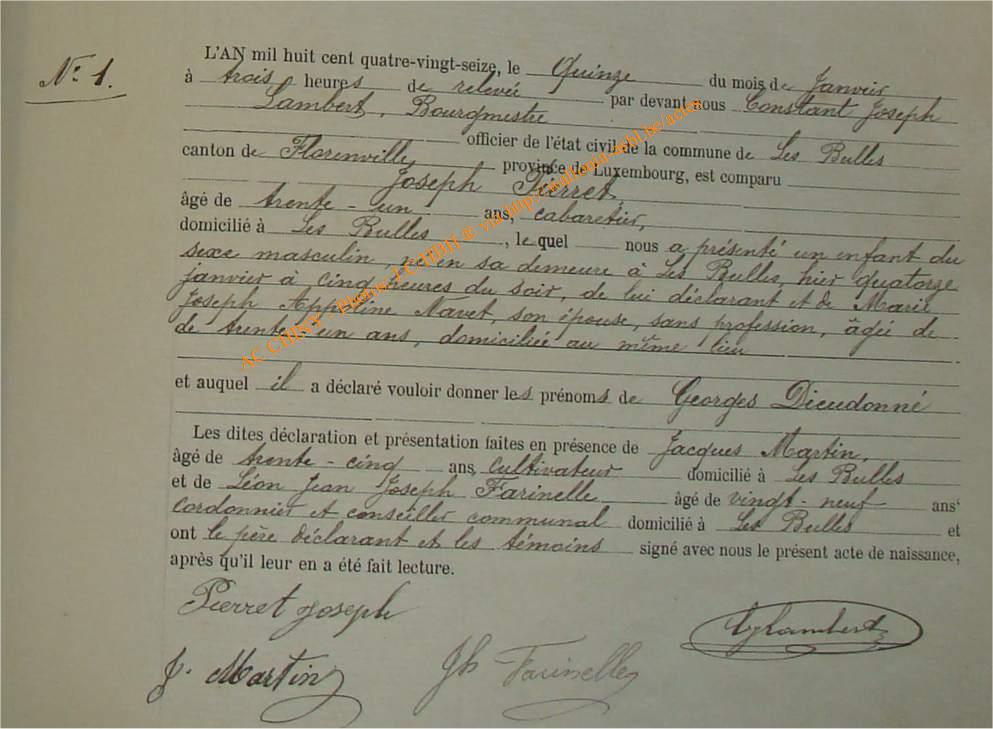 N° 1.
L'AN mil huit cent quatre-vingt-seize, le Quinze du mois de Janvier
à trois heures de relevée par devant nous Constant Joseph
Lambert, Bourgmestre
officier de l'état civil de la commune de Les Bulles
canton de Florenville, province de Luxembourg, est comparu
Joseph Pierret,
âgé de trente-un ans, cabaretier,
domicilié à Les Bulles, le quel nous a présenté un enfant du
sexe masculin, né en sa demeure à Les Bulles, hier quatorze
janvier à cinq heures du soir, de lui déclarant et de Marie
Joseph Appoline Navet, son épouse, sans profession, âgée de
de trente un ans, domiciliée au même lieu
et auquel il a déclaré vouloir donner les prénoms de Georges Dieudonné
Les dites déclaration et présentation faites en présence de Jacques Martin,
âgé de trente-cinq ans, cultivateur domicilié à Les Bulles
et de Léon Jean Joseph Farinelle âgé de vingt-neuf ans
cordonnier et conseiller communal domicilié à Les Bulles et
ont le père déclarant et les témoins signé avec nous le présent acte de naissance,
après qu'il leur en a été fait lecture.
Pierret Joseph
Lambert
J. Martin Jh Farinelle
AC CHINY - Photos